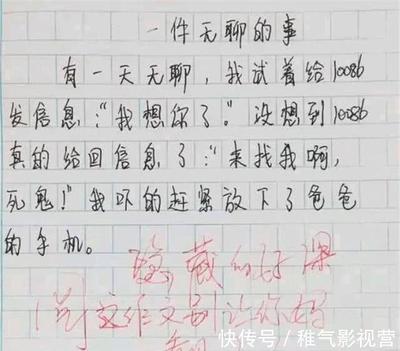 一件无聊的事
有一天无聊，我试着给10086
发信息："我想你了。"没想到10086
真的给回信息了："来找我啊，
死鬼！"我吓的赶紧放下了爸爸
的手机。
隐藏的好深
这作文别让你妈
快传号/稚气影视营